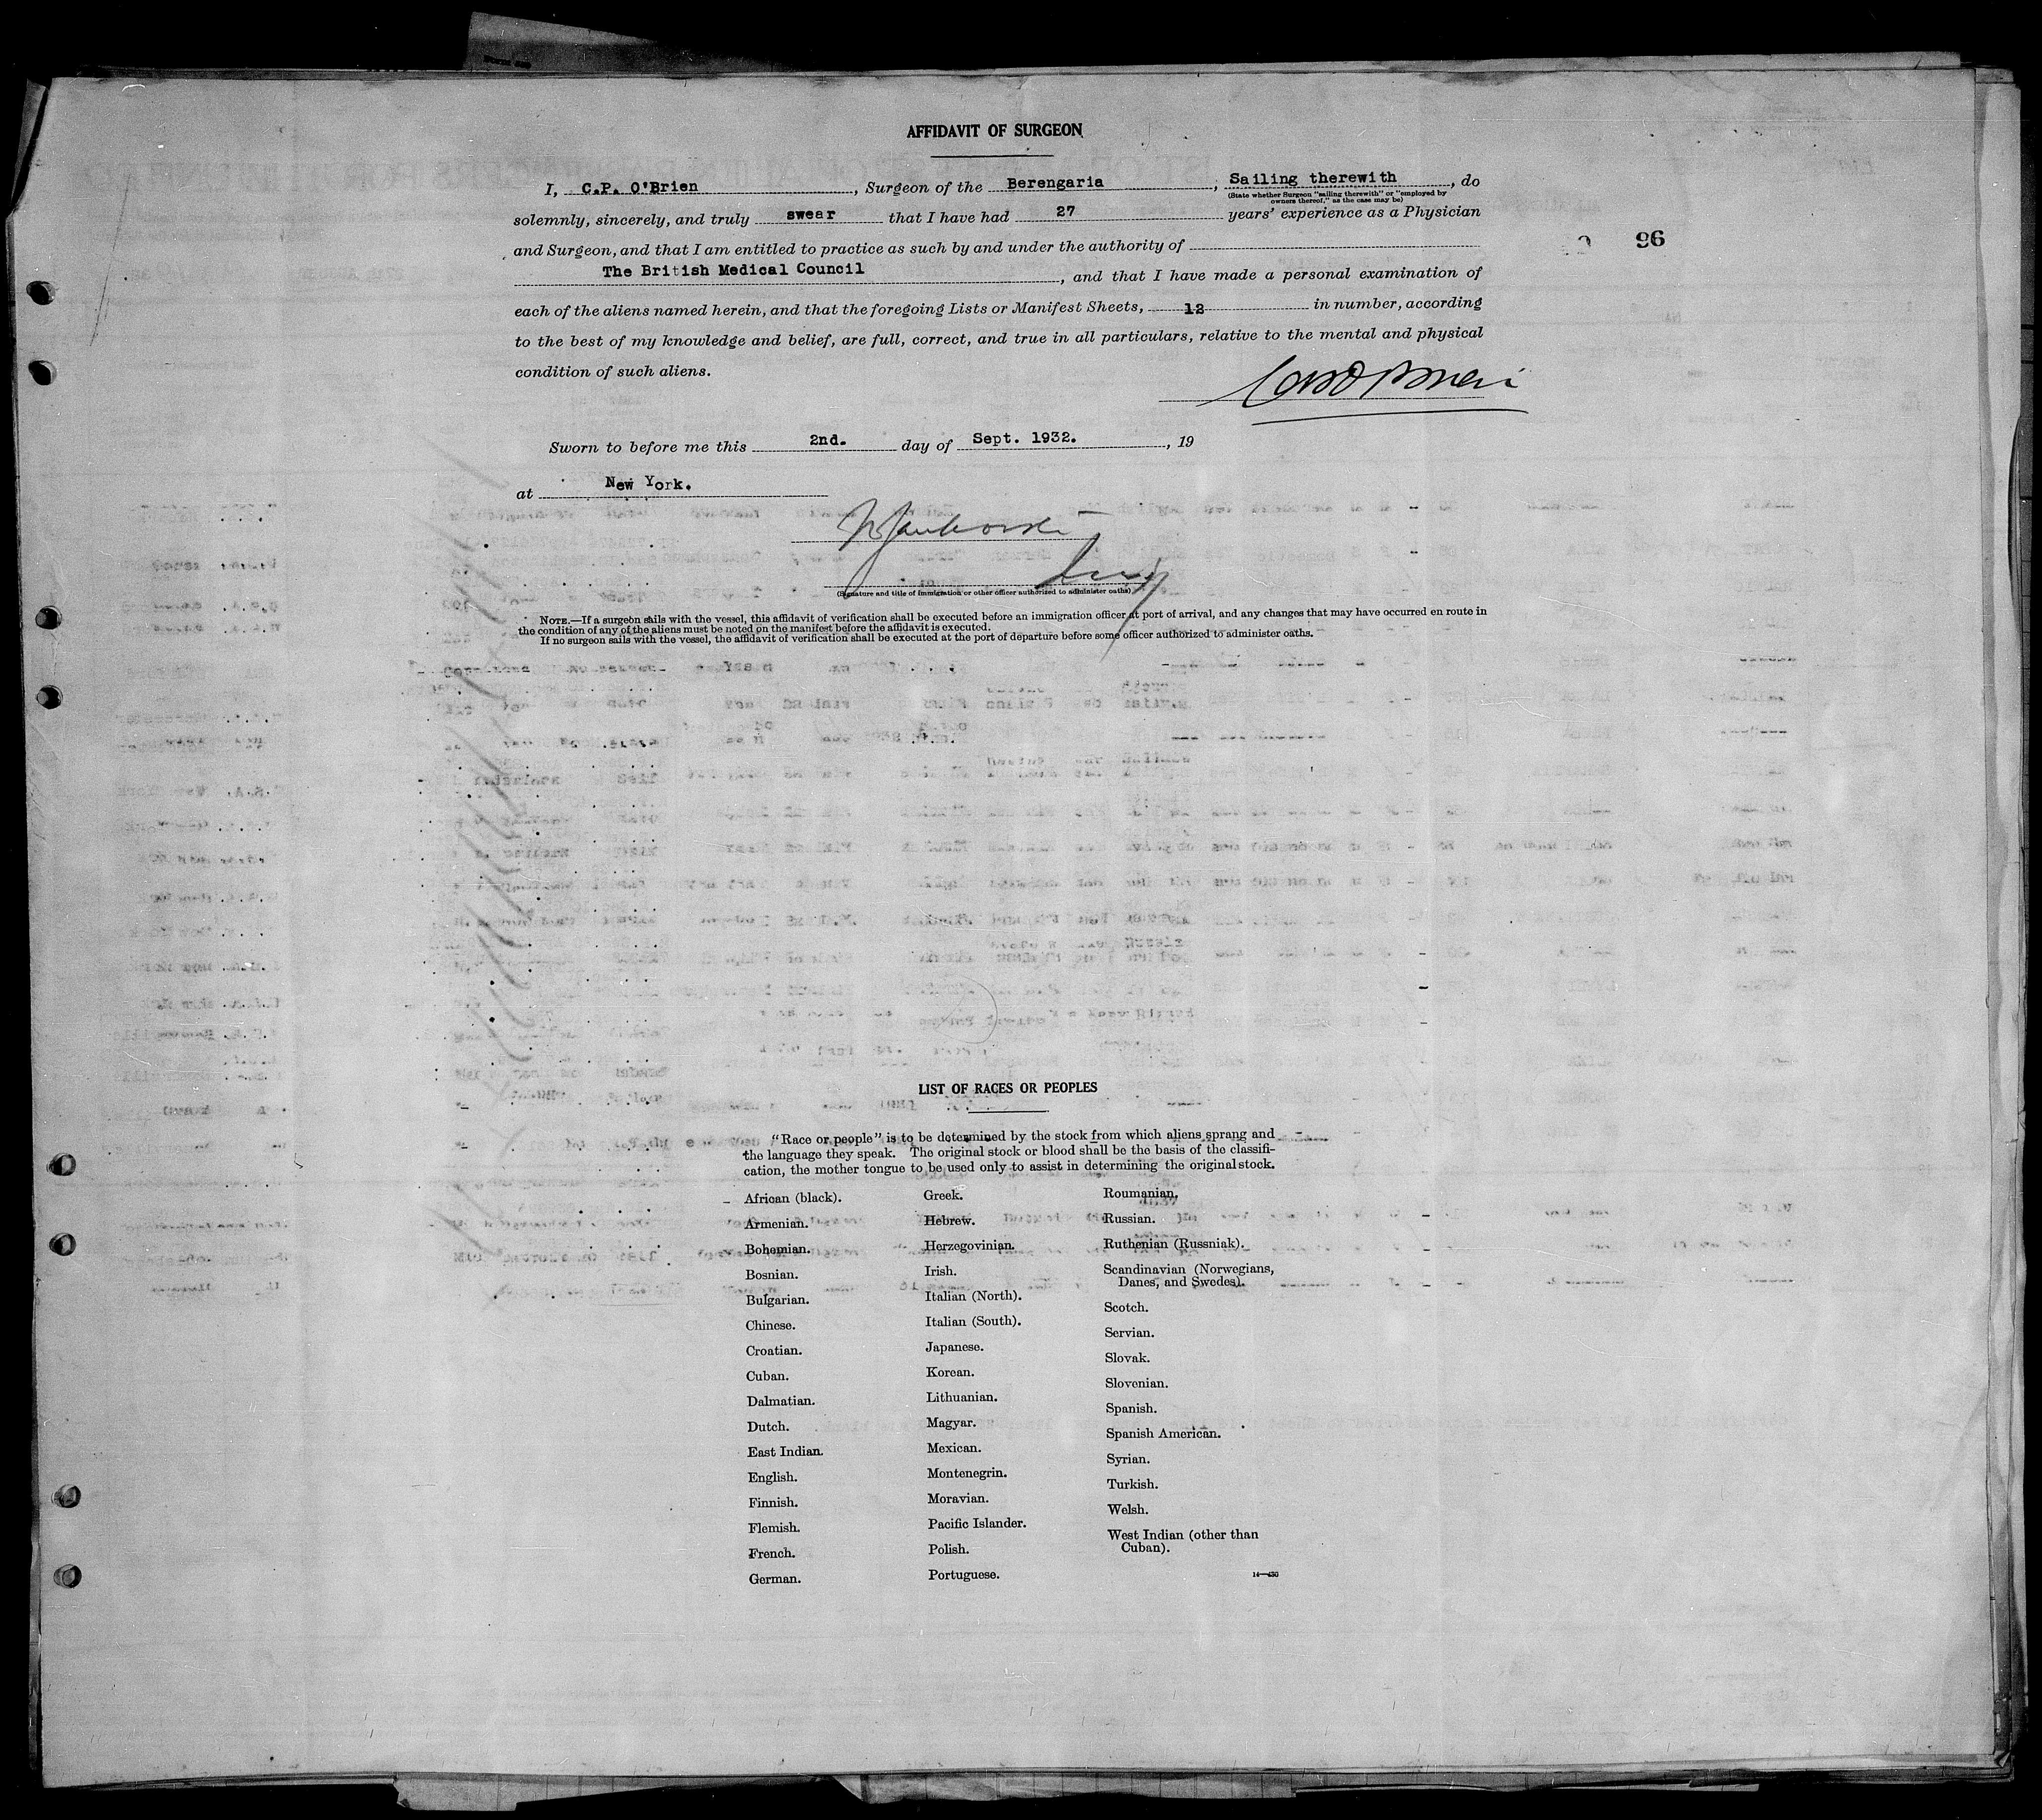 AFFIDAVIT OF SURGEON
I, C.P. O'Brien, Surgeon of the Berengaria, Sailing therewith, do
(State whether Surgeon "sailing therewith" or "employed by
owners thereof," as the case may be)
solemnly, sincerely, and truly swear that I have had 27 years' experience as a Physician
and Surgeon, and that I am entitled to practice as such by and under the authority of
96
The British Medical Council, and that I have made a personal examination of
each of the aliens named herein, and that the foregoing Lists or Manifest Sheets, 12 in number, according
to the best of my knowledge and belief, are full, correct, and true in all particulars, relative to the mental and physical
condition of such aliens.
Sworn to before me this 2nd. day of Sept. 1932., 19
at New York.
(Signature and title of immigration or other officer authorized to administer oaths)
NOTE.—If a surgeon sails with the vessel, this affidavit of verification shall be executed before an immigration officer at port of arrival, and any changes that may have occurred en route in
the condition of any of the aliens must be noted on the manifest before the affidavit is executed.
If no surgeon sails with the vessel, the affidavit of verification shall be executed at the port of departure before some officer authorized to administer oaths.
LIST OF RACES OR PEOPLES
"Race or people" is to be determined by the stock from which aliens sprang and
the language they speak. The original stock or blood shall be the basis of the classifi-
cation, the mother tongue to be used only to assist in determining the original stock.
African (black).
Armenian.
Bohemian.
Bosnian.
Bulgarian.
Chinese.
Croatian.
Cuban.
Dalmatian.
Dutch.
East Indian.
English.
Finnish.
Flemish.
French.
German.
Greek.
Hebrew.
Herzegovinian.
Irish.
Italian (North).
Italian (South).
Japanese.
Korean.
Lithuanian.
Magyar.
Mexican.
Montenegrin.
Moravian.
Pacific Islander.
Polish.
Portuguese.
Roumanian.
Russian.
Ruthenian (Russniak).
Scandinavian (Norwegians,
Danes, and Swedes).
Scotch.
Servian.
Slovak.
Slovenian.
Spanish.
Spanish American.
Syrian.
Turkish.
Welsh.
West Indian (other than
Cuban).